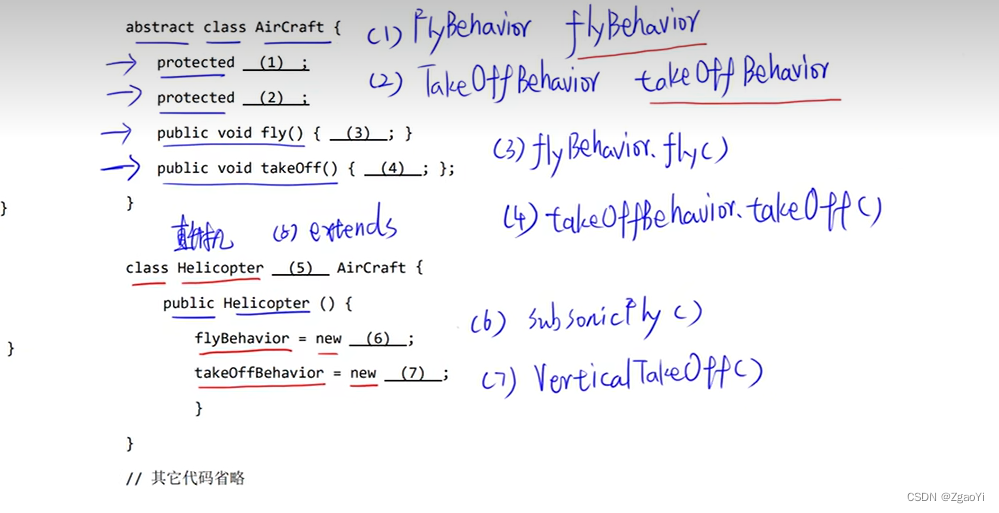 abstract class AirCraft {
(1) FlyBehavior flyBehavior
protected __(1)__ ;
(2) TakeOffBehavior takeOffBehavior
protected __(2)__ ;
public void fly() { __(3)__ ; }
(3) flyBehavior.fly()
public void takeOff() { __(4)__ ; };
}
}
(4) takeOffBehavior.takeOff()
直升机 (5) extends
class Helicopter __(5)__ AirCraft {
public Helicopter () {
(6) SubsonicFly()
flyBehavior = new __(6)__ ;
}
takeOffBehavior = new __(7)__ ;
(7) VerticalTakeOff()
}
}
// 其它代码省略
CSDN @ZgaoYi